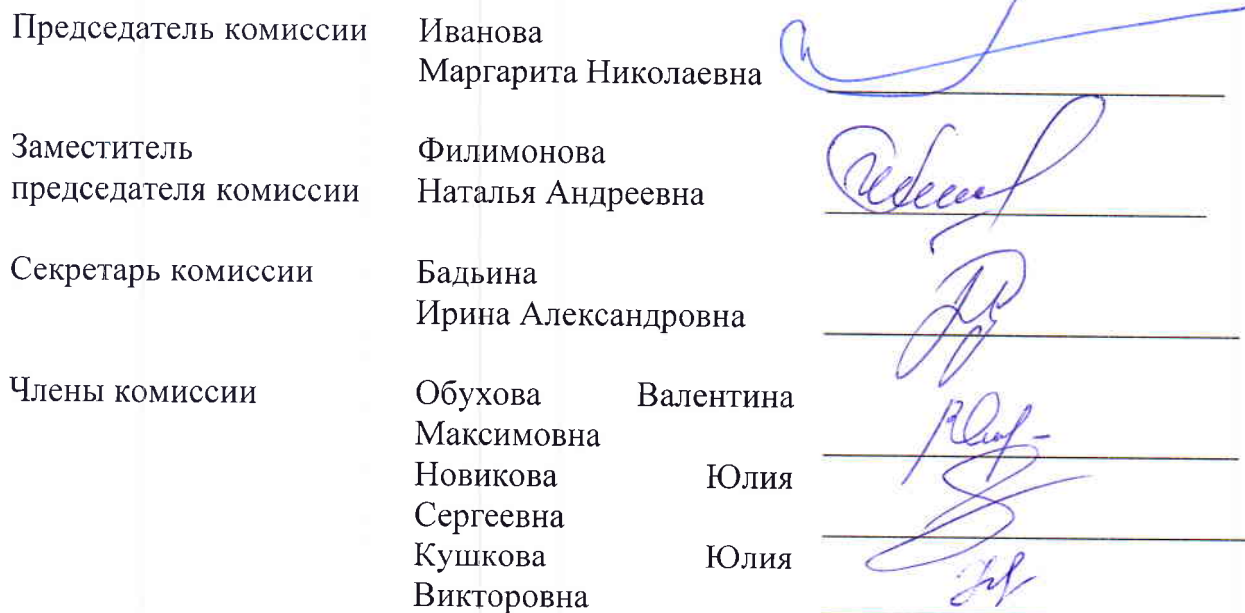 Председатель комиссии Иванова
Маргарита Николаевна
Заместитель Филимонова
председателя комиссии Наталья Андреевна
Секретарь комиссии Бадьина
Ирина Александровна
Члены комиссии Обухова Валентина
Максимовна
Новикова Юлия
Сергеевна
Кушкова Юлия
Викторовна